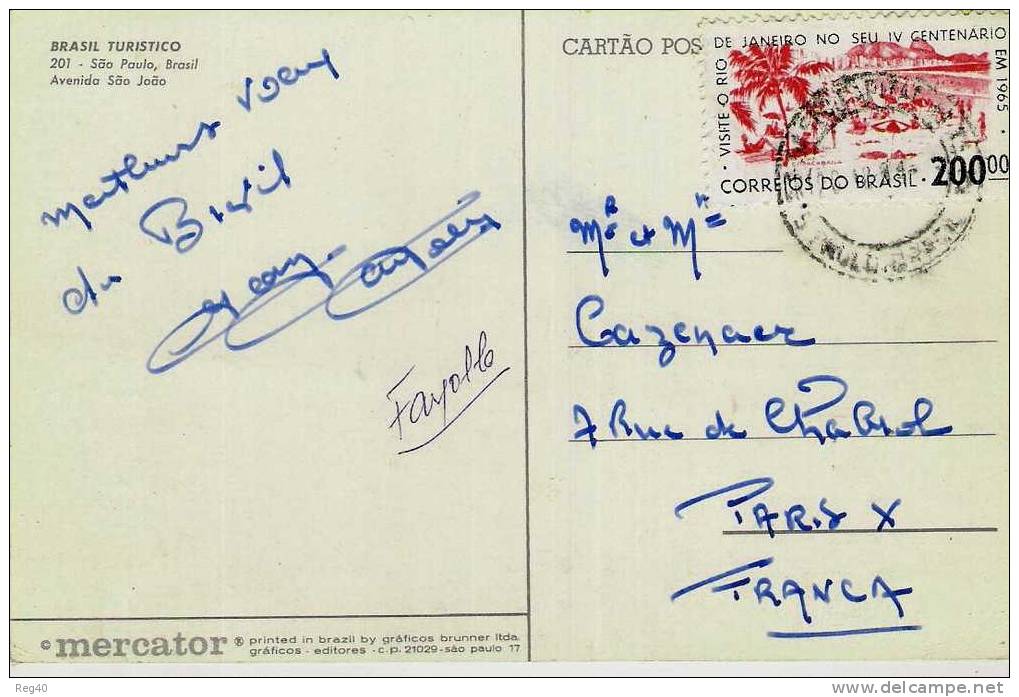 BRASIL TURISTICO
201 - São Paulo, Brasil
Avenida São João
Meilleurs voeux
du Brésil
Fayolle
© mercator ® printed in brazil by gráficos brunner ltda.
gráficos - editores - c.p. 21029 - são paulo 17
CARTÃO POS
VISITE O RIO DE JANEIRO NO SEU IV CENTENÁRIO EM 1965
COPACABANA
CORREIOS DO BRASIL - 200,00
Mr et Mme
Cazenave
7 Rue de Chabrol
PARIS X
FRANCA
Reg40
www.delcampe.net